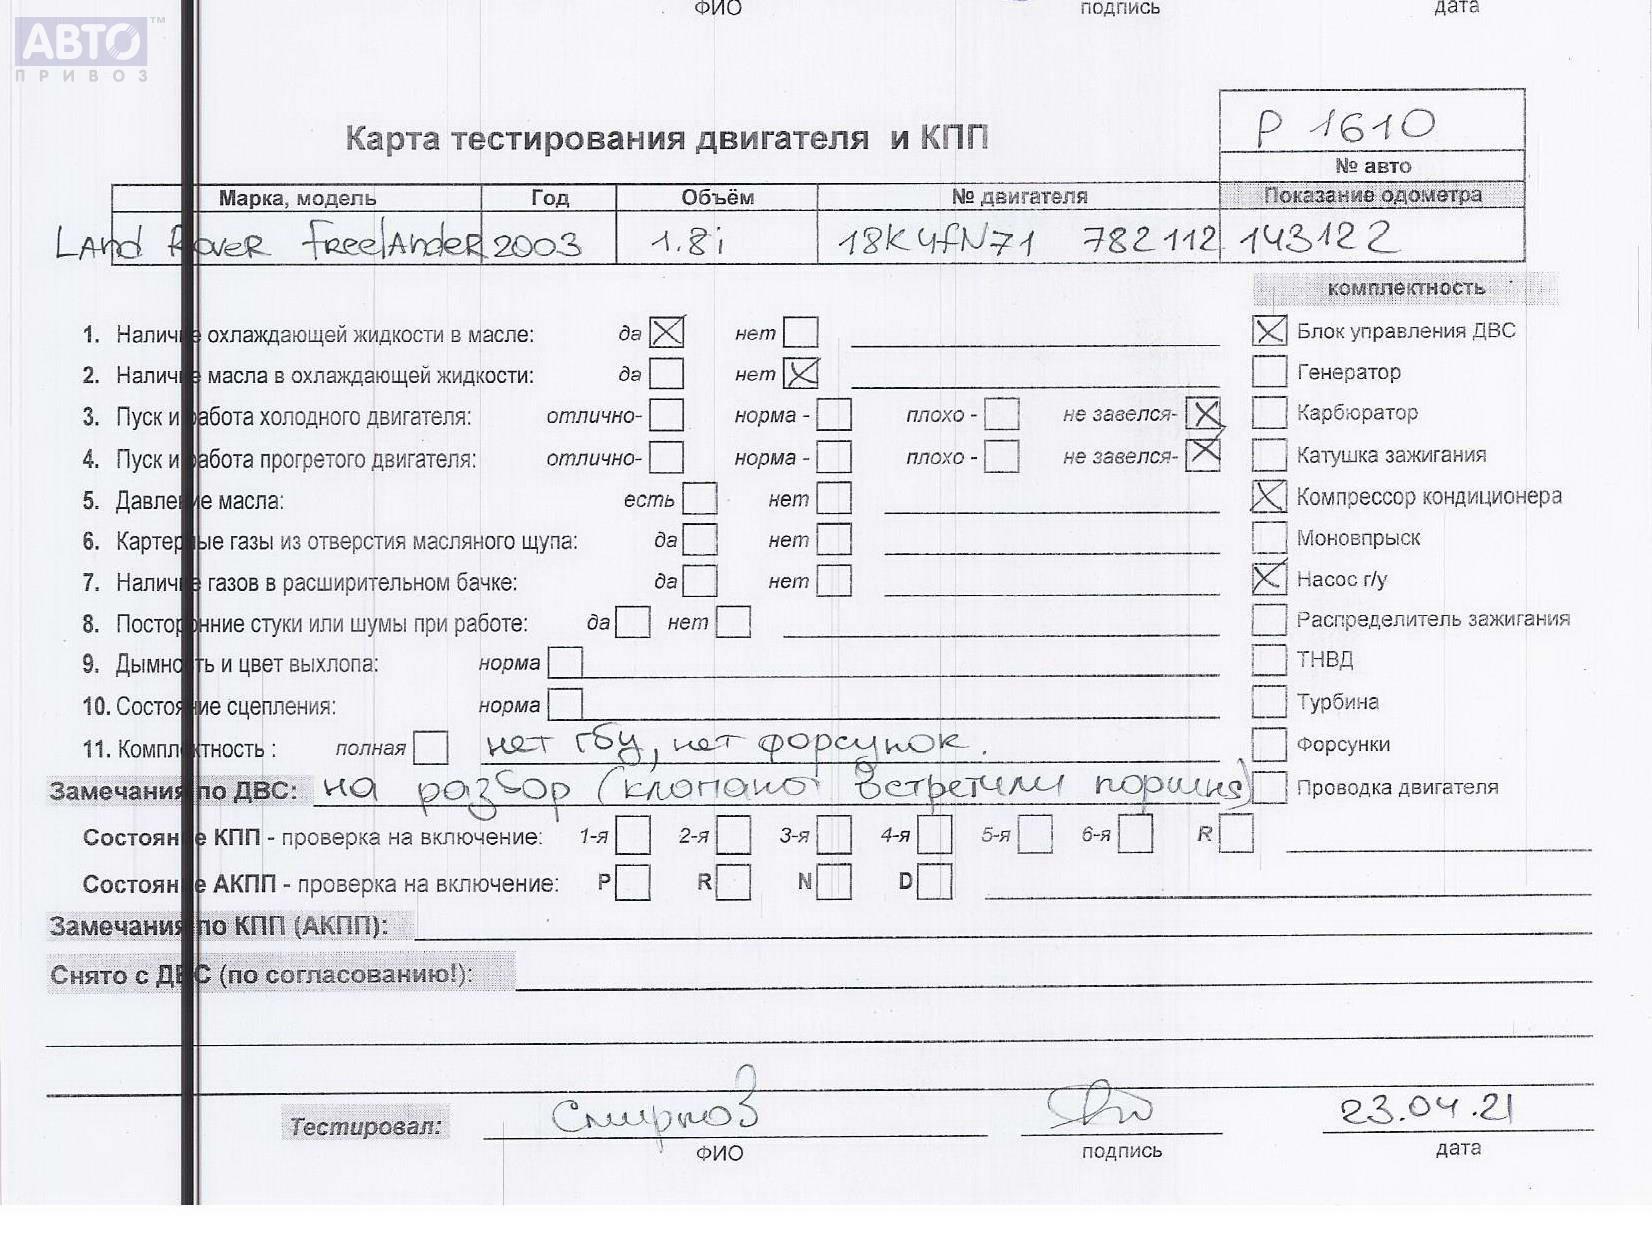 ФИО подпись дата
АВТО™
ПРИВОЗ
Карта тестирования двигателя и КПП
P 1610
№ авто
Марка, модель Год Объём № двигателя Показание одометра
Land Rover Freelander 2003 1.8i 18K4FN71 782112 143122
комплектность
1. Наличие охлаждающей жидкости в масле: да нет Блок управления ДВС
2. Наличие масла в охлаждающей жидкости: да нет Генератор
3. Пуск и работа холодного двигателя: отлично- норма - плохо - не завелся- Карбюратор
4. Пуск и работа прогретого двигателя: отлично- норма - плохо - не завелся- Катушка зажигания
5. Давление масла: есть нет Компрессор кондиционера
6. Картерные газы из отверстия масляного щупа: да нет Моновпрыск
7. Наличие газов в расширительном бачке: да нет Насос г/у
8. Посторонние стуки или шумы при работе: да нет Распределитель зажигания
9. Дымность и цвет выхлопа: норма ТНВД
10. Состояние сцепления: норма Турбина
11. Комплектность : полная нет гбу, нет форсунок. Форсунки
Замечания по ДВС: на разбор (клапана встретили поршня) Проводка двигателя
Состояние КПП - проверка на включение: 1-я 2-я 3-я 4-я 5-я 6-я R
Состояние АКПП - проверка на включение: P R N D
Замечания по КПП (АКПП):
Снято с ДВС (по согласованию!):
Тестировал: Смирнов 23.04.21
ФИО подпись дата